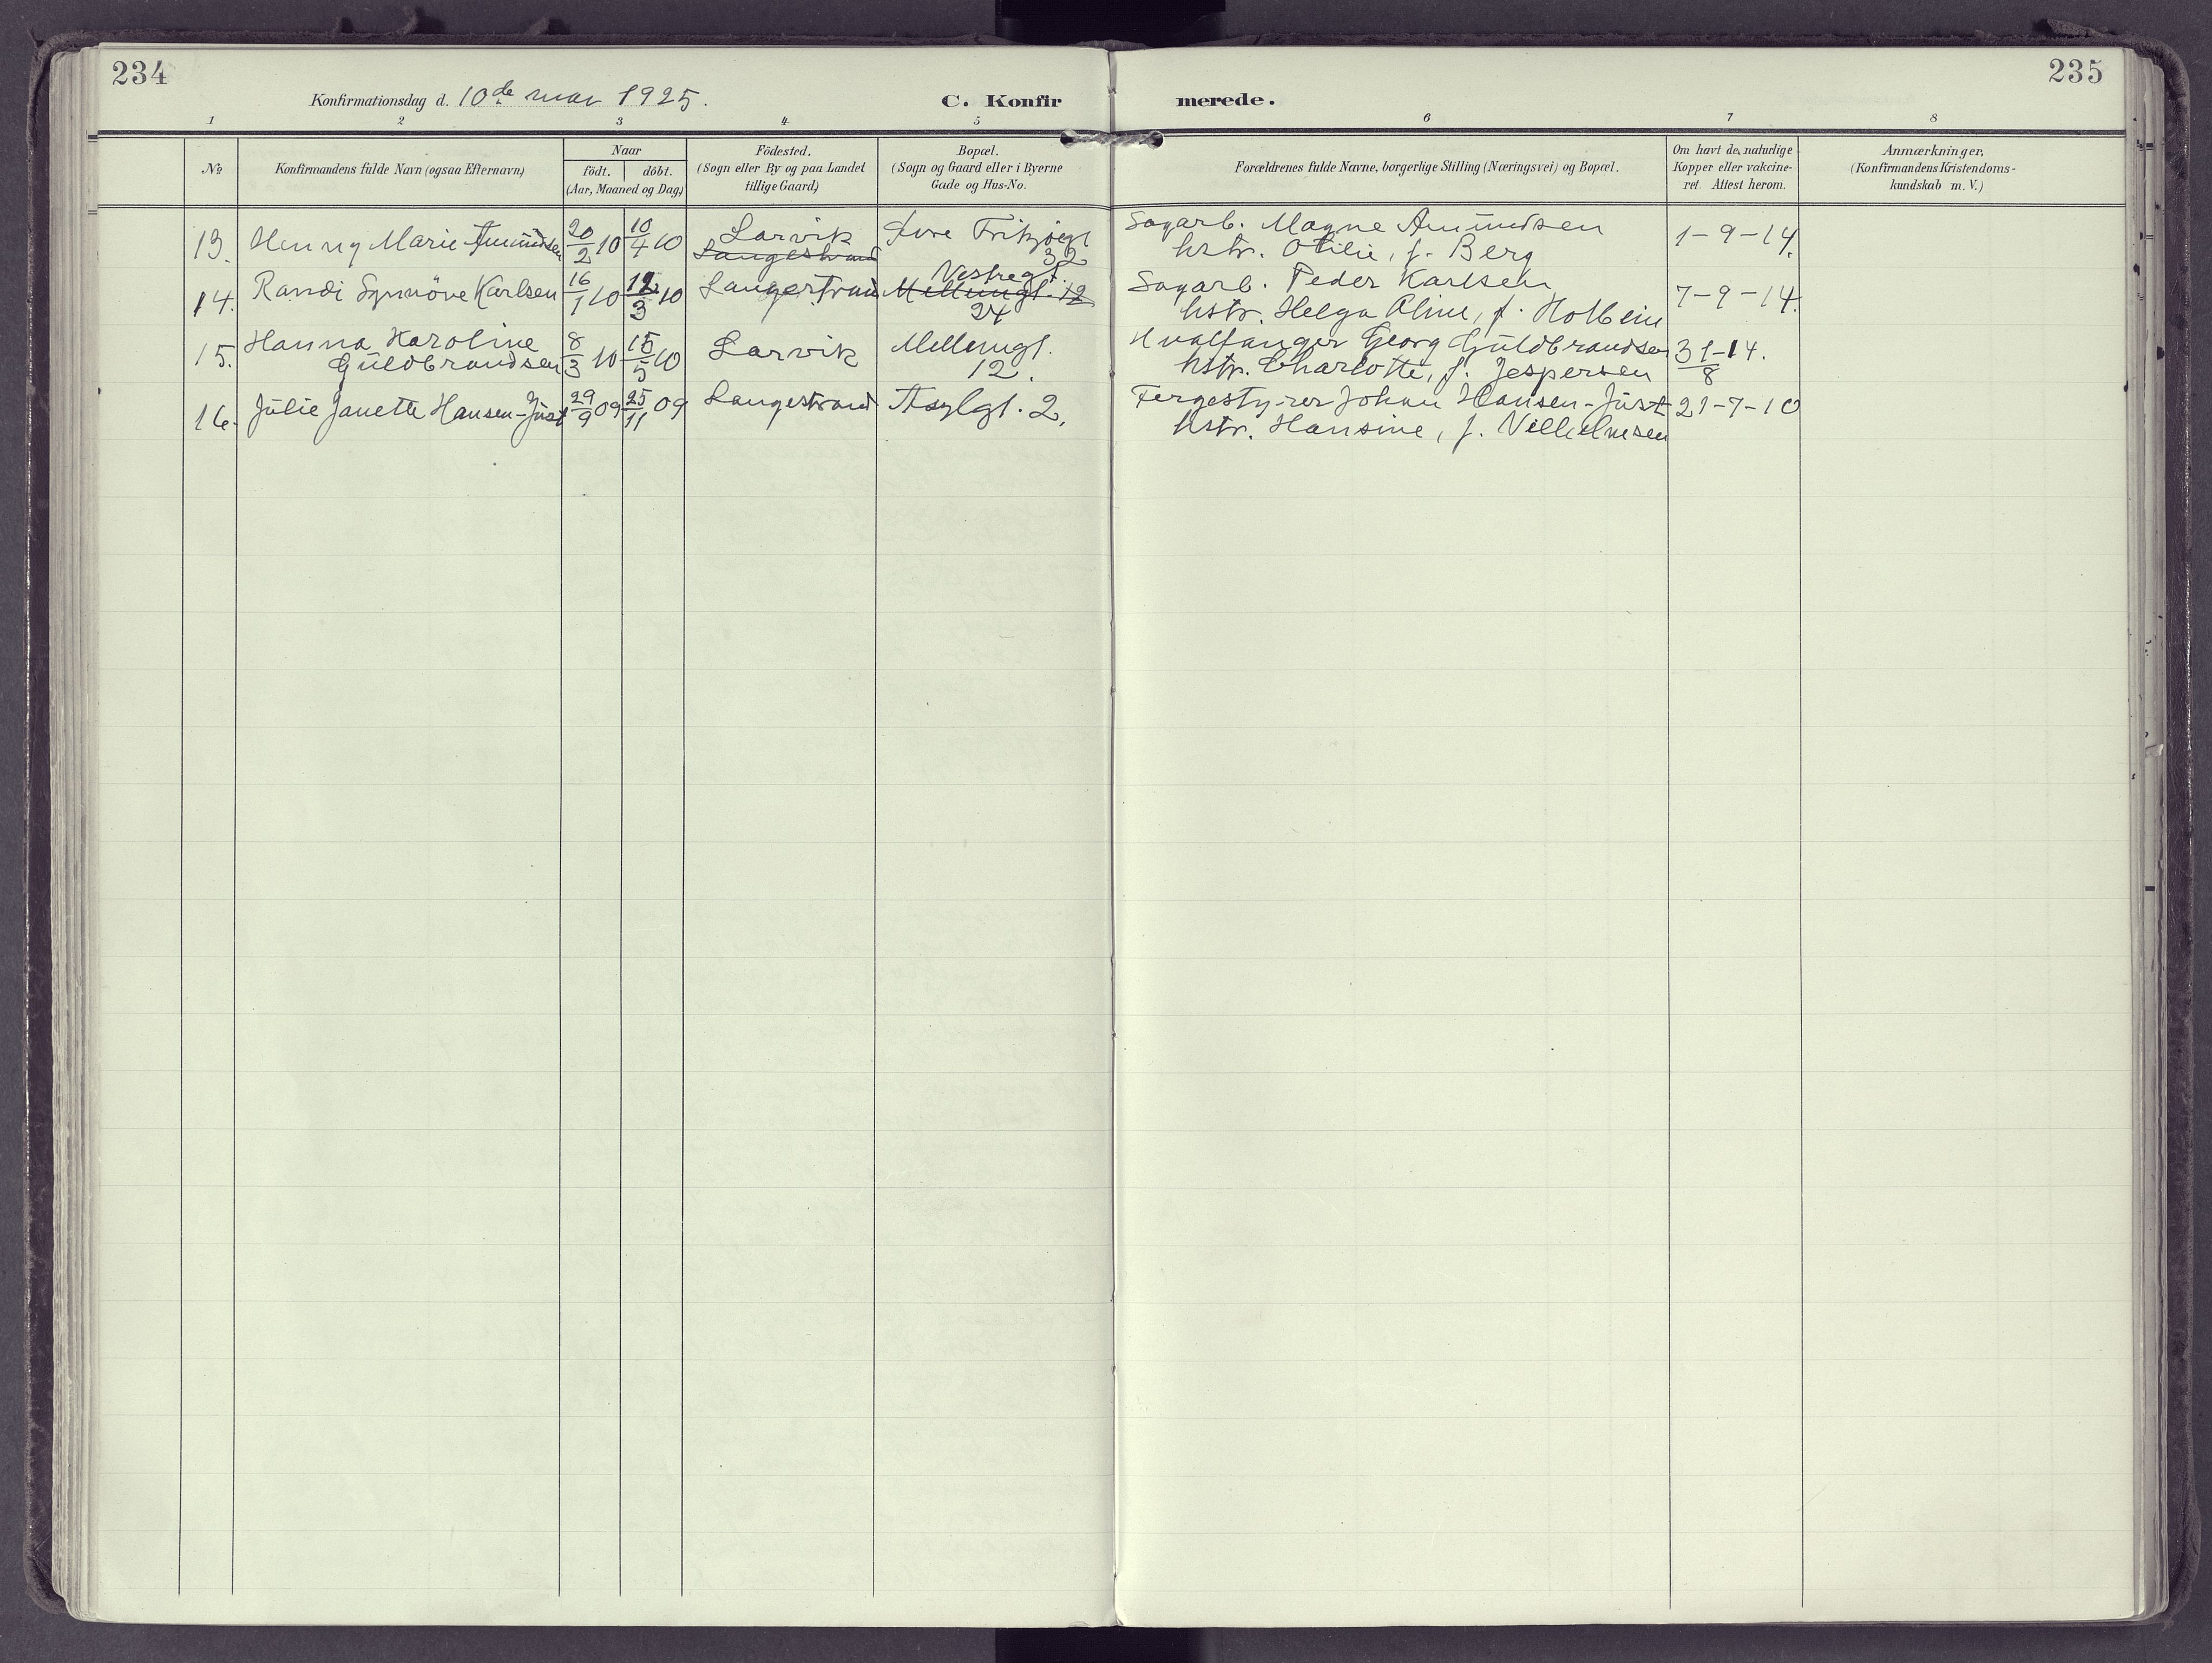 234
235
Konfirmationsdag d. 10de mai 1925.
C. Konfir
merede.
1 2 3 4 5 6 7 8
No
Konfirmandens fulde Navn (ogsaa Efternavn)
Naar
födt. döbt.
(Aar, Maaned og Dag)
Födested.
(Sogn eller By og paa Landet
tillige Gaard)
Bopæl.
(Sogn og Gaard eller i Byerne
Gade og Hus-No.
Forældrenes fulde Navne, borgerlige Stilling (Næringsvei) og Bopæl.
Om havt de naturlige
Kopper eller vakcine-
ret Attest herom.
Anmærkninger,
(Konfirmandens Kristendoms-
kundskab m. V.)
13. Henny Marie Amundsen 20/2 10 10/4 10 Larvik
Langestrand
Øvre Fritzøegt
32
Sagarb. Magne Amundsen
hstr. Otilie, f. Berg
1-9-14.
14. Randi Synnöve Karlsen 16/1 10 12/3 10 Langestrand
Vestregt.
Mellemgt. 12
24
Sagarb. Peder Karlsen
hstr. Helga Aline, f. Holbein
7-9-14.
15. Hanna Karoline
Guldbrandsen 8/3 10 15/5 10 Larvik
Mellemgt.
12.
Hvalfanger Georg Guldbrandsen
hstr. Charlotte, f. Jespersen
31/8-14.
16. Julie Janette Hansen-Just 29/9 09 25/11 09 Langestrand Asylgt. 2.
Fergestyrer Johan Hansen-Just
hstr. Hansine, f. Vilhelmsen
21-7-10